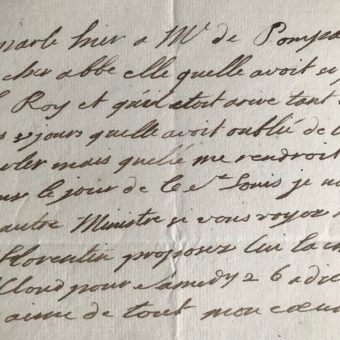 parlé hier a Mde de Pompa
cher abbe elle quelle avoit
Roy et quil etoit arivé tant
jours quelle avoit oublié de
parler mais quelle me rendroit
le jour de la St Louis je
autre Ministre si vous voyez
florentin proposez lui la
Cloud pour samedy 26 a
aime de tout mon cœur